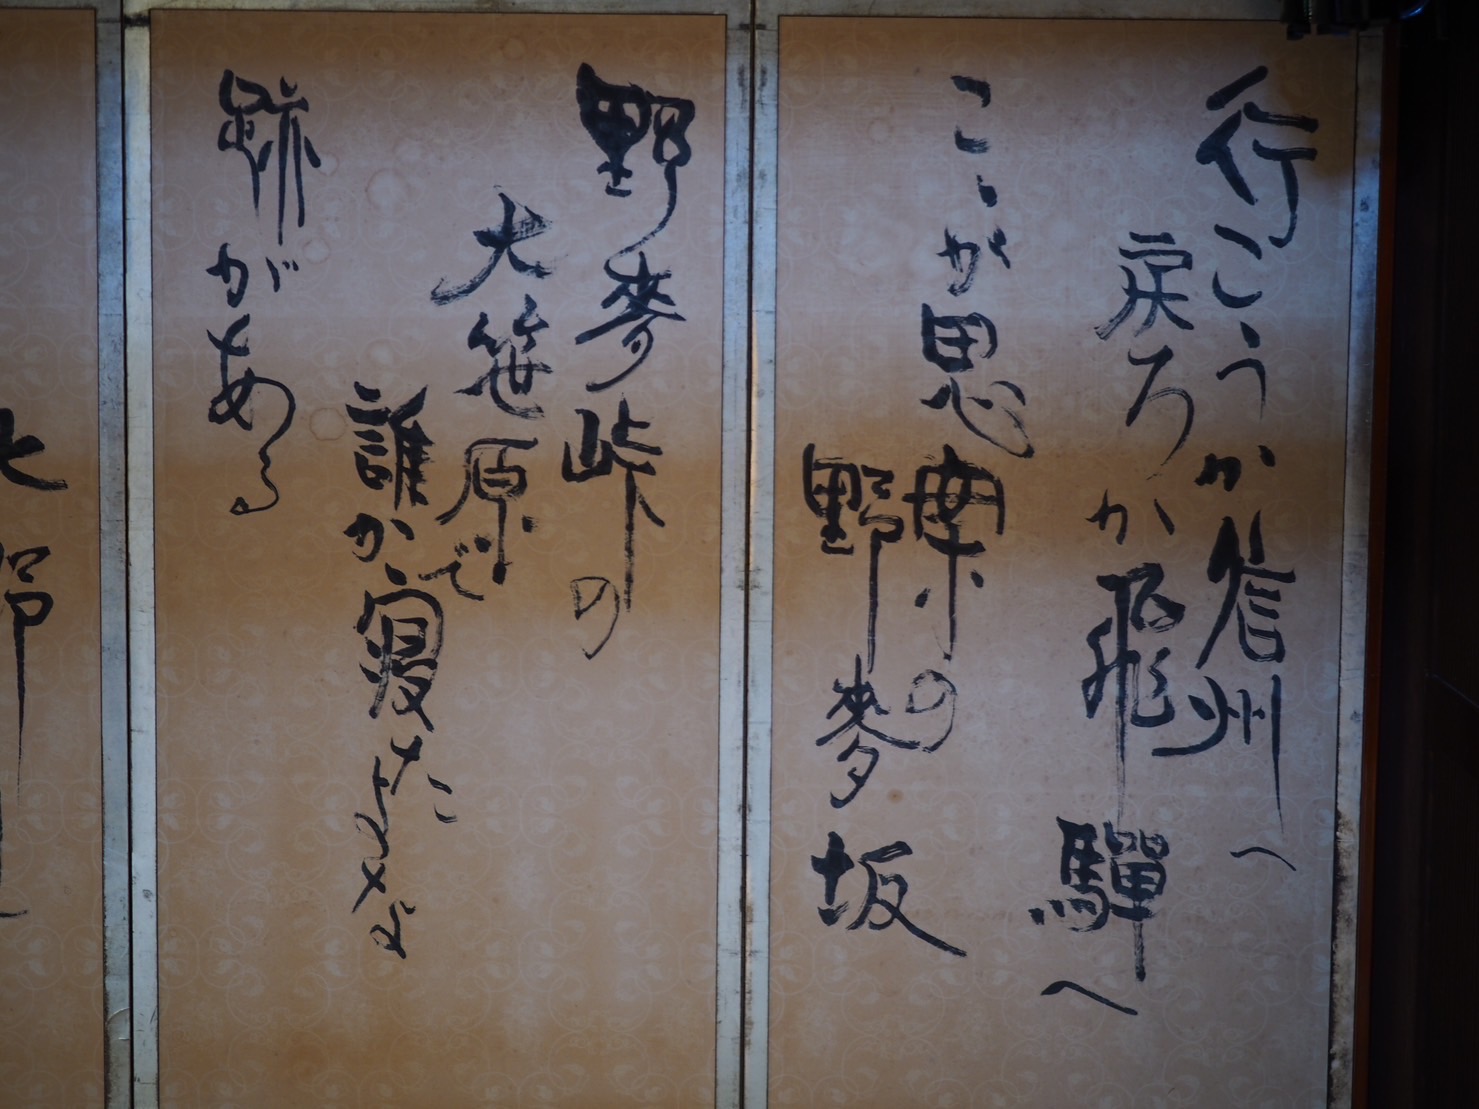 行こうか信州へ
戻ろか飛騨へ
こゝが思案の
野麥坂
野麥峠の
大笹原で
誰か寝たよな
跡がある